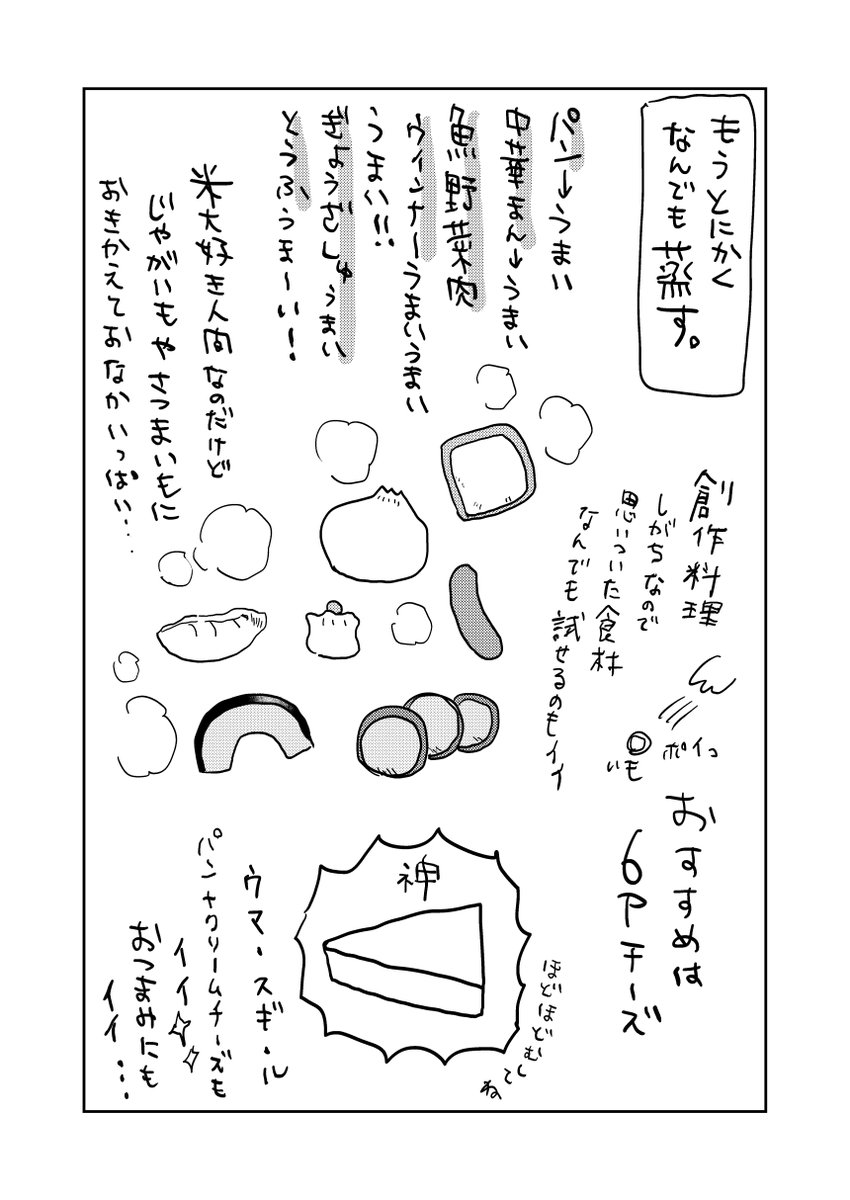 もうとにかく
なんでも蒸す。
パン→うまい
中華まん→うまい
魚野菜肉
ウィンナーうまいうまい
うまい!!
ぎょうざしゅうまい
とうふうま〜い!
米大好き人間なのだけど
じゃがいもやさつまいもに
おきかえておなかいっぱい…
創作料理
しがちなので
思いついた食材
なんでも試せるのもイイ
ポイッ
いも
おすすめは
6Pチーズ
神
ほどほどむしてね
ウマ・スギ・ル
パン+クリームチーズも
イイ
おつまみにも
イイ…